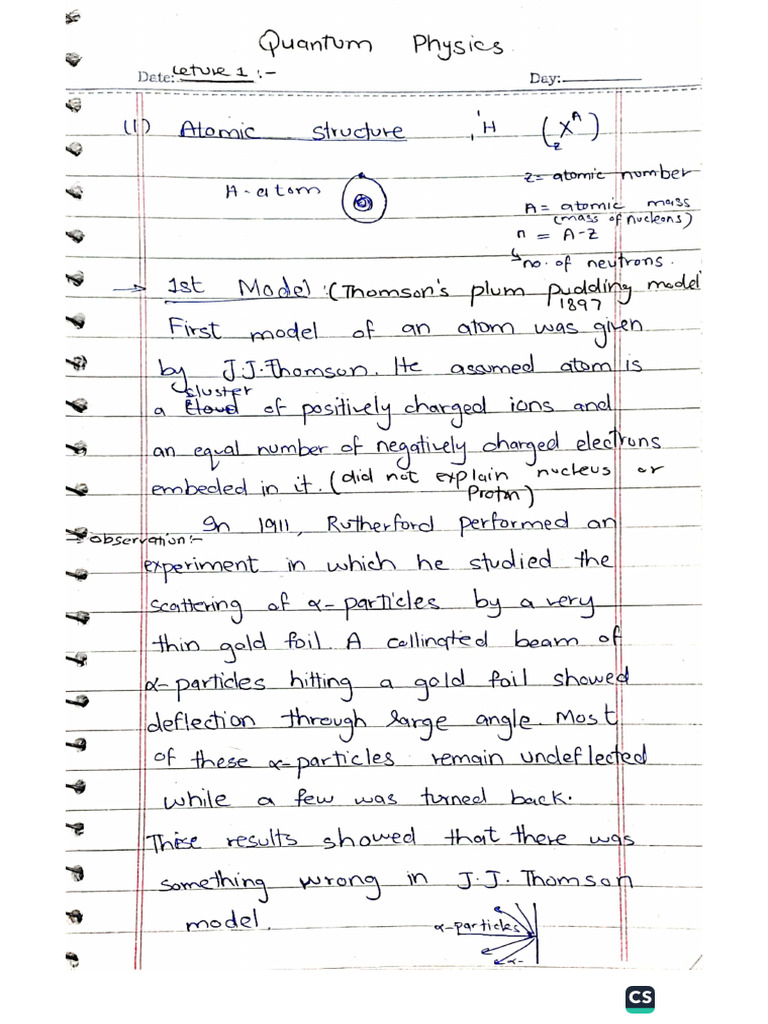 Quantum Physics
Date: Leture 1 :- Day:
(1) Atomic structure ₁¹H (zXᴬ)
H-atom
z = atomic number
A = atomic mass
(mass of nucleons)
n = A-Z
no. of neutrons.
→ 1st Model :(Thomson's plum pudding model
1897
First model of an atom was given
by J.J.Thomson. He assumed atom is
cluster
a cloud of positively charged ions and
an equal number of negatively charged electrons
embeded in it. (did not explain nucleus or
Proton)
In 1911, Rutherford performed an
→ observation:-
experiment in which he studied the
scattering of α-particles by a very
thin gold foil. A collimated beam of
α-particles hitting a gold foil showed
deflection through large angle. Most
of these α-particles remain undeflected
while a few was turned back.
These results showed that there was
something wrong in J.J. Thomson
model.
α-particles
α-
CS